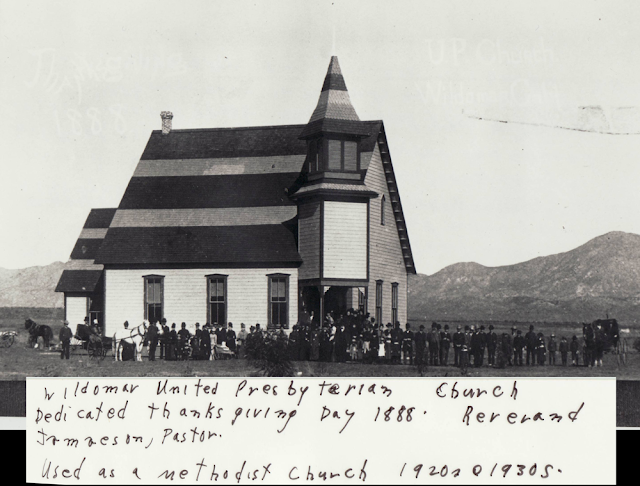 June 1112
1888
U.P. Church
Wildomar Cal.
Wildomar United Presbyterian Church
Dedicated thanks giving Day 1888. Reverand
Jamaeson, Pastor.
Used as a methodist Church 1920s @ 1930s.